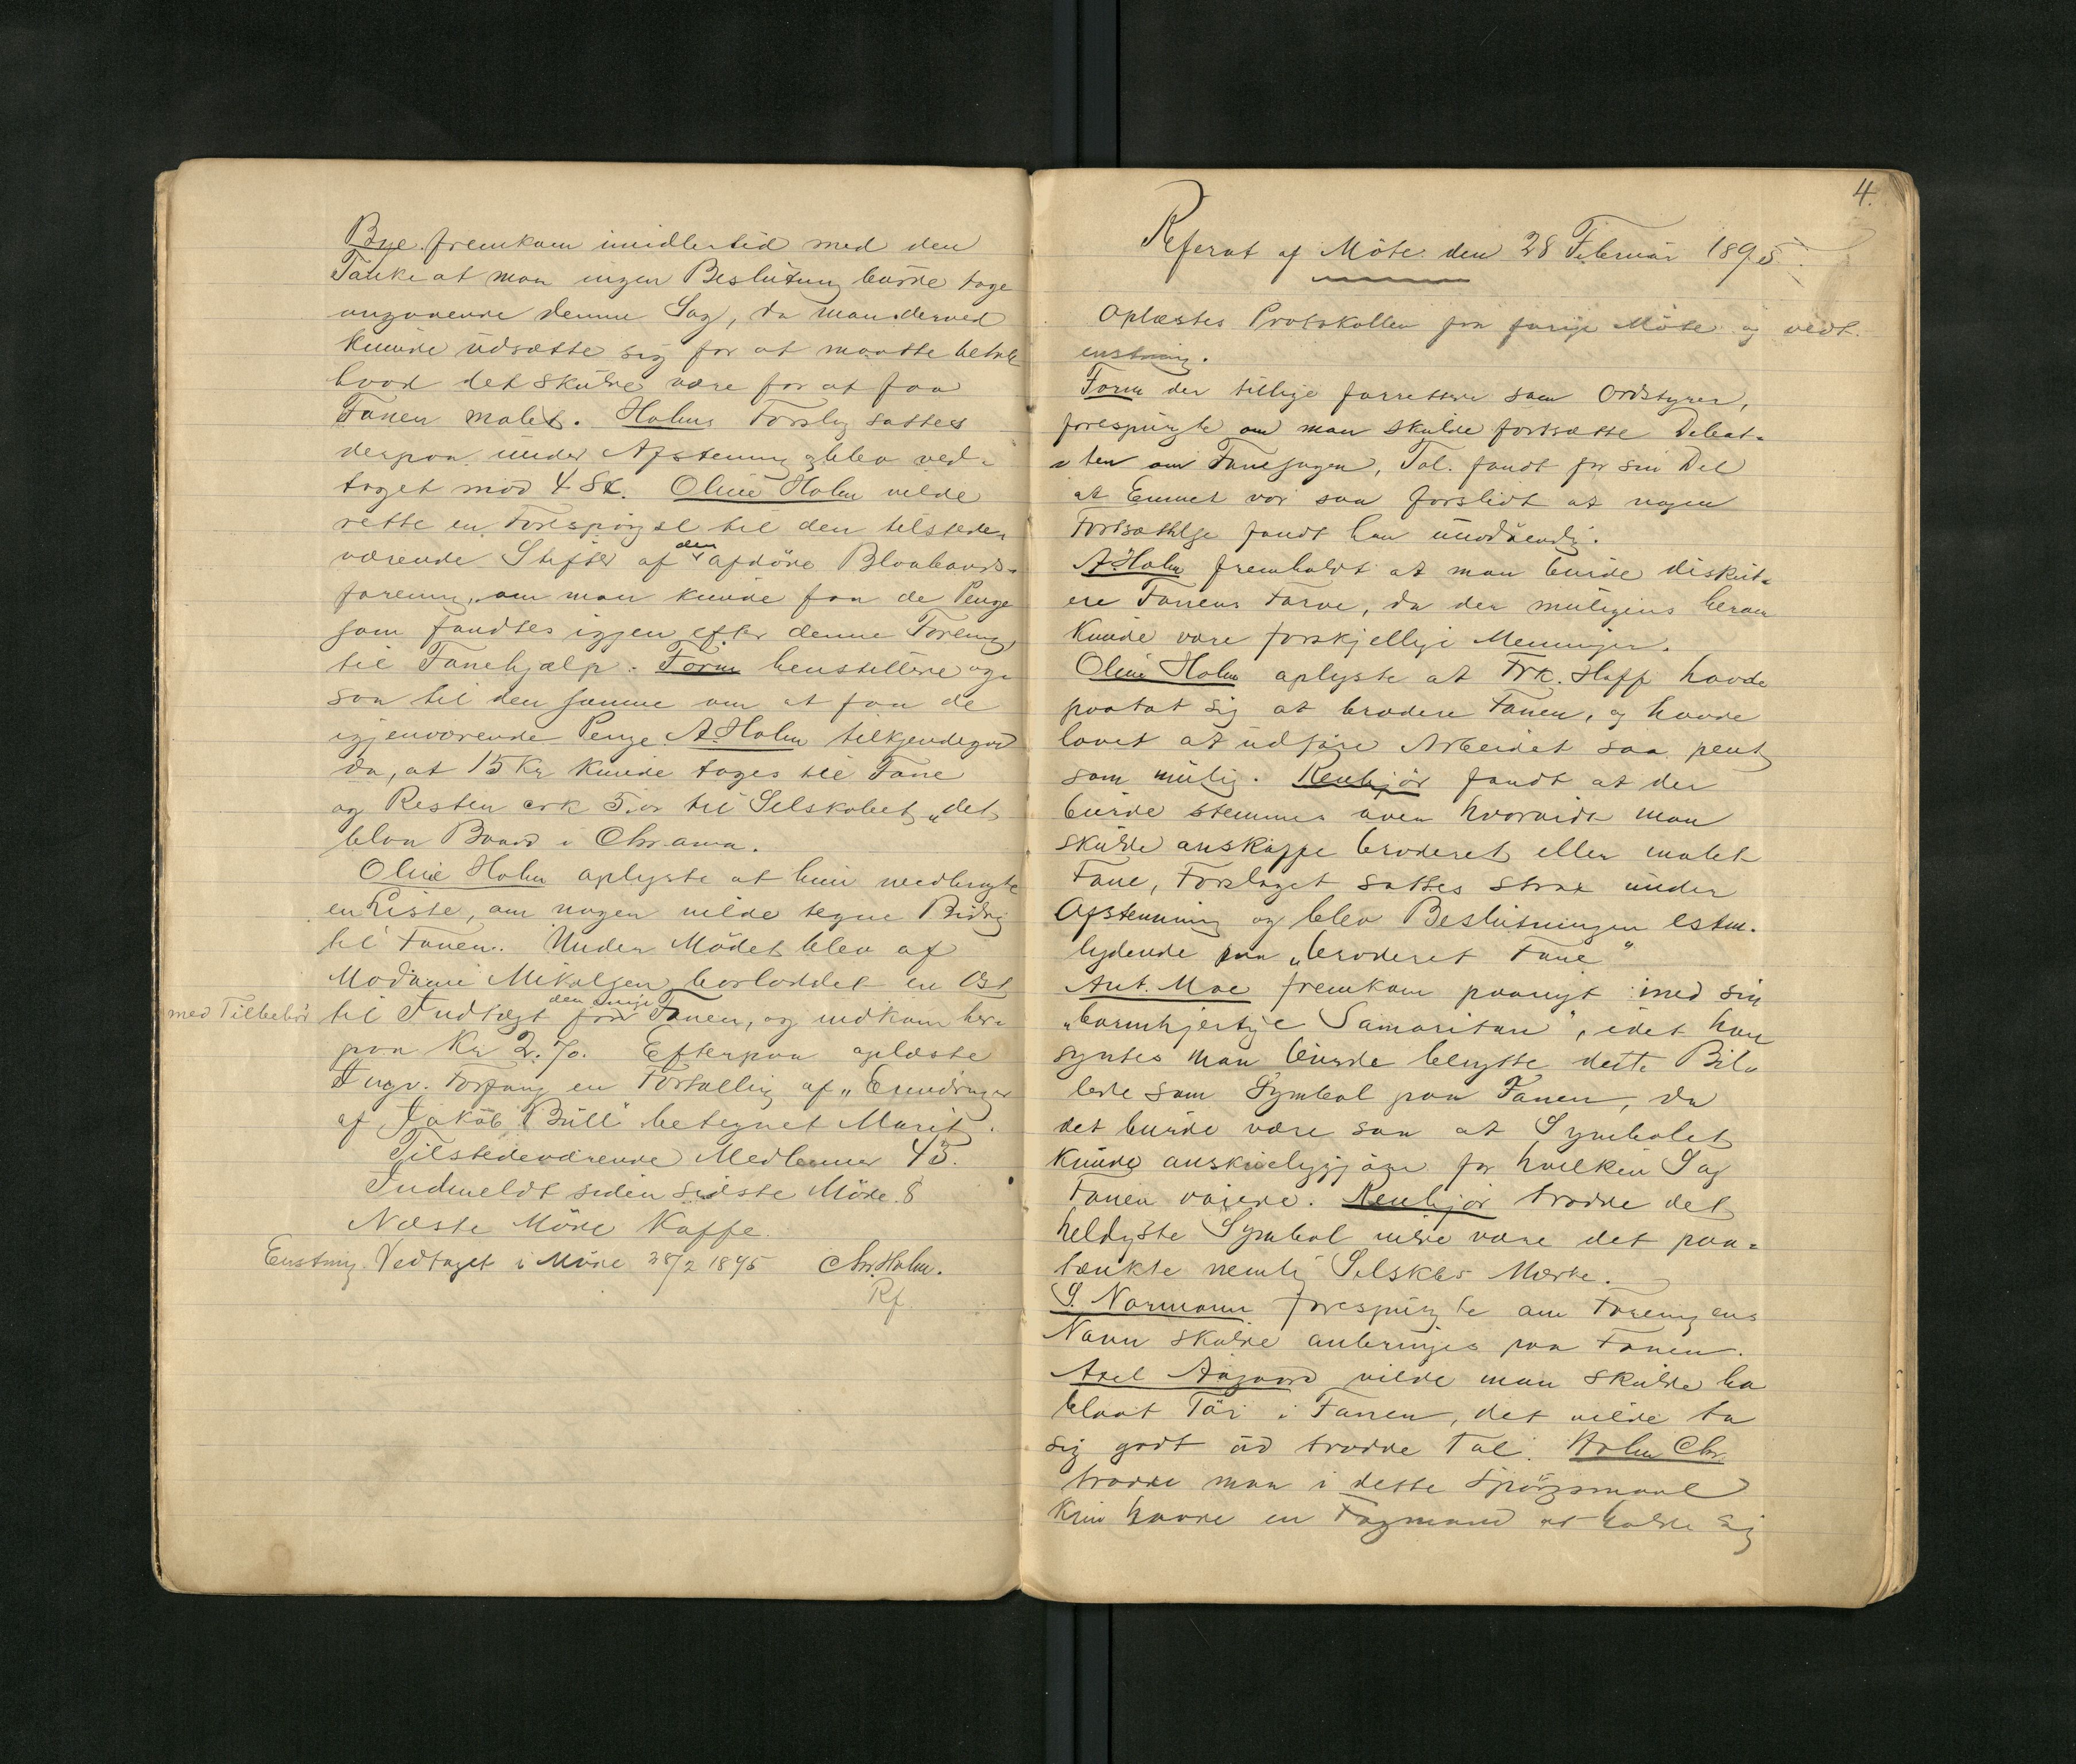 Bye. fremkom imidlertid med den
Tanke at man ingen Beslutning burde tage
angaaende denne Sag, da man derved
kunde udsætte sig for at maatte betale
hvad det skulde være for at faa
Fanen malet. Holms Forslag sattes
derpaa under Afstemning og blev ved-
taget mod 4 St. Oline Holm vilde
rette en Forespörgsel til den tilstede-
værende Stifter af den afdöde Blaabaands-
forening, om man kunde faa de Penge
som fandtes igjen efter denne Forening
til Fanehjælp. Form henstillede og-
saa til den samme om at faa de
igjenværende Penge. A. Holm tilkjendegav
da, at 15 Kr kunde tages til Fane
og Resten til Selskabet „det
blaa Baand i Chr.ania.
Oline Holm oplyste at hun medbragte
en Liste, om nogen vilde tegne Bidrag
til Fanen. Under Mödet blev af
Madame Mikalsen bortloddet en Ost
med Tilbehör til Indtægt for den nye Fanen, og indkom her-
paa Kr 2.70. Efterpaa oplæste
Ingv. Forfang en Fortælling af „
af Jakob Bull" betegnet Marit.
Tilstedeværende Medlemmer 43.
Indmeldt siden sidste Möde 8
Næste Möde Kaffe.
Enstmig Vedtaget i Möde 28/2 1895 Chr. Holm.
Rf.
4.
Referat af Möte den 28 Februar 1895.
Oplæstes Protokollen fra forrige Möte og vedt.
enstmig.
Form der tillige forrettede som Ordstyrer,
forespurgte om man skulde fortsætte Debat-
ten om Fanesagen, Tal. fandt for sin Del
at Emnet var saa forslidt at nogen
Fortsættelse fandt han unödvendig.
A. Holm fremholdt at man burde diskut-
ere Fanens Farve, da der muligens herom
kunde være forskjellige Meninger.
Oline Holm oplyste at Frk. Hoff havde
paatat sig at brodere Fanen, og havde
lovet at udföre Arbeidet saa pent
som mulig. Renhjör fandt at der
burde stemmes over hvorvidt man
skulde anskaffe broderet eller malet
Fane, Forslaget sattes strax under
Afstemning og blev Beslutningen estm.
lydende paa „broderet Fane"
Ant. Moe fremkom paanyt med sin
„barmhjertige Samaritan", idet han
syntes man burde benytte dette Bil-
lede som Symbol paa Fanen, da
det burde være saa at Symbolet
kunde anskueliggjöre for hvilken Sag
Fanen vaiede. Renhjör trodde det
heldigste Symbol vilde være det paa-
tænkte nemlig Selskbs Mærke.
S. Normann forespurgte om Foreningens
Navn skulde anbringes paa Fanen.
Axel Aagaard vilde man skulde ha
blaat Töi i Fanen, det vilde ta
sig godt ud trodde Tal. Holm Chr.
trodde man i dette Spörgsmaal
kun havde en Fagmand at holde sig